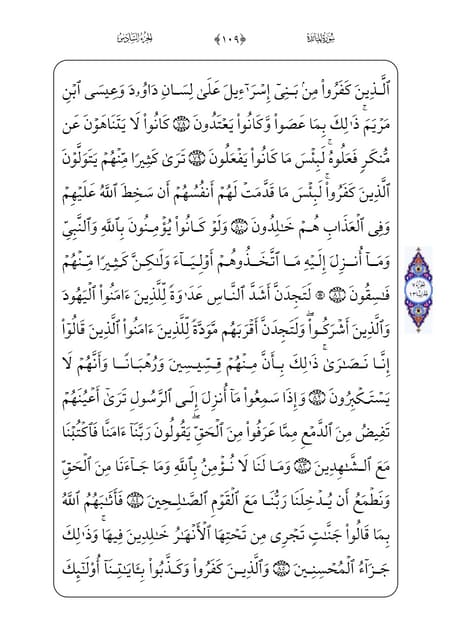 سُورَةُ المَائِدَةِ ﴿١٠٩﴾ الجُزءُ السَّادِسُ
ٱلَّذِينَ كَفَرُوا۟ مِنۢ بَنِىٓ إِسْرَٰٓءِيلَ عَلَىٰ لِسَانِ دَاوُۥدَ وَعِيسَى ٱبْنِ
مَرْيَمَ ۚ ذَٰلِكَ بِمَا عَصَوا۟ وَّكَانُوا۟ يَعْتَدُونَ ﴿٧٨﴾ كَانُوا۟ لَا يَتَنَاهَوْنَ عَن
مُّنكَرٍ فَعَلُوهُ ۚ لَبِئْسَ مَا كَانُوا۟ يَفْعَلُونَ ﴿٧٩﴾ تَرَىٰ كَثِيرًا مِّنْهُمْ يَتَوَلَّوْنَ
ٱلَّذِينَ كَفَرُوا۟ ۚ لَبِئْسَ مَا قَدَّمَتْ لَهُمْ أَنفُسُهُمْ أَن سَخِطَ ٱللَّهُ عَلَيْهِمْ
وَفِى ٱلْعَذَابِ هُمْ خَٰلِدُونَ ﴿٨٠﴾ وَلَوْ كَانُوا۟ يُؤْمِنُونَ بِٱللَّهِ وَٱلنَّبِىِّ
وَمَآ أُنزِلَ إِلَيْهِ مَا ٱتَّخَذُوهُمْ أَوْلِيَآءَ وَلَٰكِنَّ كَثِيرًا مِّنْهُمْ
فَٰسِقُونَ ﴿٨١﴾ ۞ لَتَجِدَنَّ أَشَدَّ ٱلنَّاسِ عَدَٰوَةً لِّلَّذِينَ ءَامَنُوا۟ ٱلْيَهُودَ
وَٱلَّذِينَ أَشْرَكُوا۟ ۖ وَلَتَجِدَنَّ أَقْرَبَهُم مَّوَدَّةً لِّلَّذِينَ ءَامَنُوا۟ ٱلَّذِينَ قَالُوٓا۟
إِنَّا نَصَٰرَىٰ ۚ ذَٰلِكَ بِأَنَّ مِنْهُمْ قِسِّيسِينَ وَرُهْبَانًا وَأَنَّهُمْ لَا
يَسْتَكْبِرُونَ ﴿٨٢﴾ وَإِذَا سَمِعُوا۟ مَآ أُنزِلَ إِلَى ٱلرَّسُولِ تَرَىٰٓ أَعْيُنَهُمْ
تَفِيضُ مِنَ ٱلدَّمْعِ مِمَّا عَرَفُوا۟ مِنَ ٱلْحَقِّ ۖ يَقُولُونَ رَبَّنَآ ءَامَنَّا فَٱكْتُبْنَا
مَعَ ٱلشَّٰهِدِينَ ﴿٨٣﴾ وَمَا لَنَا لَا نُؤْمِنُ بِٱللَّهِ وَمَا جَآءَنَا مِنَ ٱلْحَقِّ
وَنَطْمَعُ أَن يُدْخِلَنَا رَبُّنَا مَعَ ٱلْقَوْمِ ٱلصَّٰلِحِينَ ﴿٨٤﴾ فَأَثَٰبَهُمُ ٱللَّهُ
بِمَا قَالُوا۟ جَنَّٰتٍ تَجْرِى مِن تَحْتِهَا ٱلْأَنْهَٰرُ خَٰلِدِينَ فِيهَا ۚ وَذَٰلِكَ
جَزَآءُ ٱلْمُحْسِنِينَ ﴿٨٥﴾ وَٱلَّذِينَ كَفَرُوا۟ وَكَذَّبُوا۟ بِـَٔايَٰتِنَآ أُو۟لَٰٓئِكَ